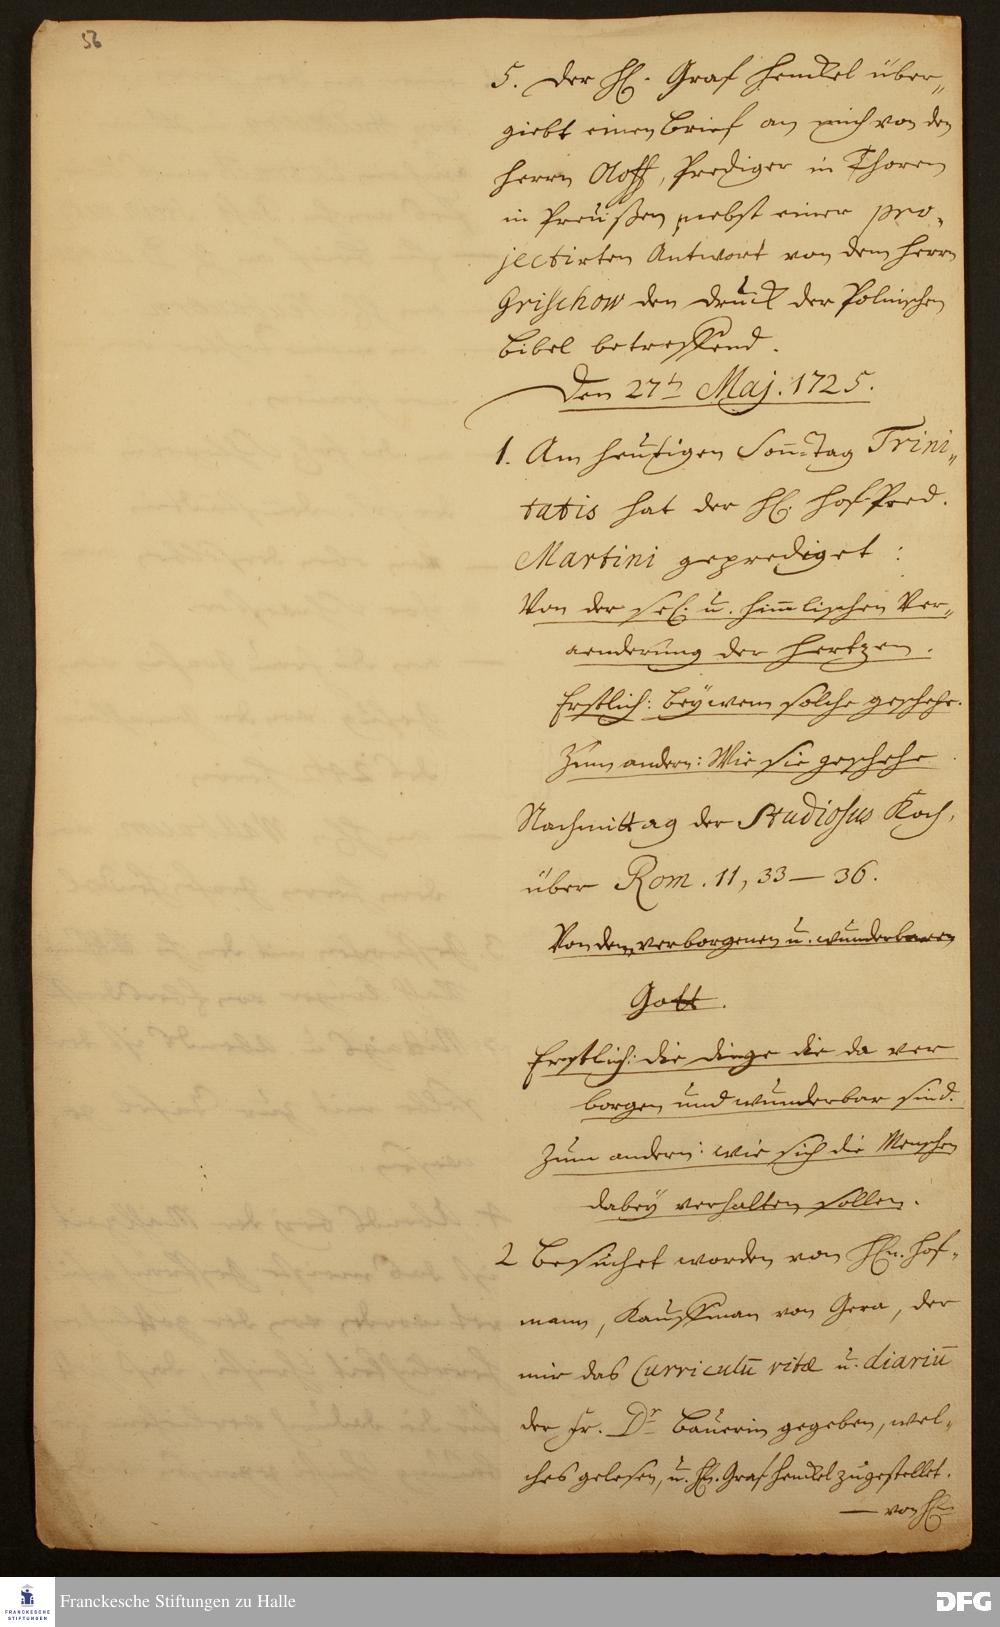 56
5. Der H. Graf Henckel über„
giebt einen Brief an mich von den
Herrn Oloff, Prediger in Thoren
in Preußen nebst einer pro„
jectirten Antwort von dem Herrn
Grischow den Druck der Polnischen
Bibel betreffend.
Den 27t. Maj. 1725.
1. Am heutigen Sonn-Tag Trini„
tatis hat der H. Hof-Pred.
Martini geprediget:
Von der sel. u. himlischen Ver„
aenderung der Hertzen.
Erstlich: bey wem solche geschehe.
Zum andern: Wie sie geschehe
Nachmittag der Studiosus Koch,
über Rom. 11, 33–36.
Von dem verborgenen u. wunderbaren
Gott.
Erstlich: die dinge die da ver
borgen und wunderbar sind.
Zum andern: wie sich die Menschen
dabey verhalten sollen.
2 Besuchet worden von Hn. Hof„
mann, Kauffman von Gera, der
mir das Curriculū vitæ u. diariū
der Fr. Dr Bauerin gegeben, wel„
ches gelesen, u. Hn. Graf Henckel zugestellet.
— von Hn
Franckesche Stiftungen zu Halle
DFG
FRANCKESCHE
STIFTUNGEN